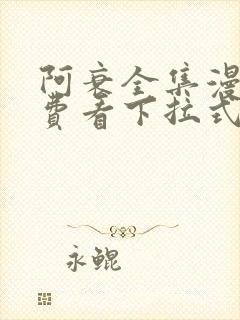 阿衰全集漫
费看下拉式
永鲲